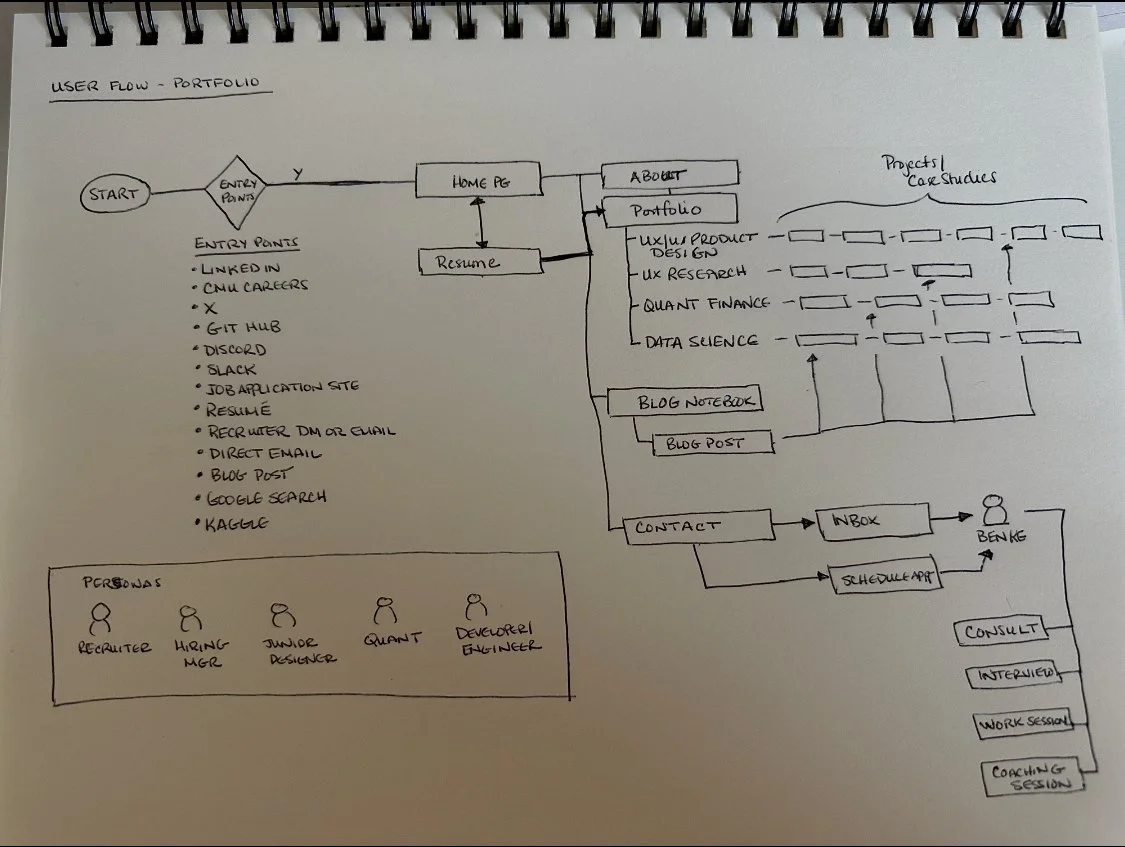 USER FLOW - PORTFOLIO
START
ENTRY
POINTS
Y
HOME PG
Resume
ABOUT
Portfolio
Projects/
Case Studies
UX/UI PRODUCT
DESIGN
UX RESEARCH
QUANT FINANCE
DATA SCIENCE
BLOG NOTEBOOK
BLOG POST
CONTACT
INBOX
BENKE
SCHEDULE APPT
CONSULT
INTERVIEW
WORK SESSION
COACHING
SESSION
ENTRY POINTS
• LINKED IN
• CMU CAREERS
• X
• GIT HUB
• DISCORD
• SLACK
• JOB APPLICATION SITE
• RESUMÉ
• RECRUITER DM OR EMAIL
• DIRECT EMAIL
• BLOG POST
• GOOGLE SEARCH
• KAGGLE
PERSONAS
RECRUITER
HIRING
MGR
JUNIOR
DESIGNER
QUANT
DEVELOPER/
ENGINEER